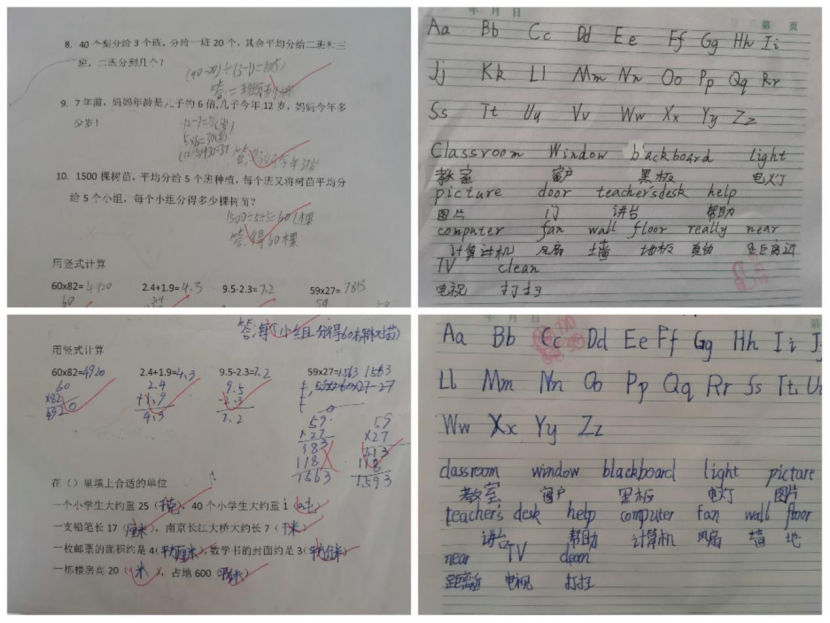 8. 40个梨分给3个班，分给一班20个，其余平均分给二班和三
班，二班分到几个？
9. 7年前，妈妈年龄是儿子的6倍，儿子今年12岁，妈妈今年多
少岁！
12-7=5(岁)
10. 1500棵树苗，平均分给5个班种植，每个班又将树苗平均分
给5个小组，每个小组分得多少棵树苗？
用竖式计算
60x82= 4920 2.4+1.9= 4.3 9.5-2.3= 7.2 59x27=
年 月 日
第 页
Aa Bb Cc Dd Ee Ff Gg Hh Ii
Jj Kk Ll Mm Nn Oo Pp Qq Rr
Ss Tt Uu Vv Ww Xx Yy Zz
Classroom Window blackboard light
教室 窗户 黑板 电灯
picture door teacher's desk help
图片 门 讲台 帮助
computer fan wall floor really near
计算机 风扇 墙 地板 真的 距离近
TV clean
电视 打扫
用竖式计算
60x82=4920 2.4+1.9=4.3 9.5-2.3=7.2 59x27= 1563
60 2.4 9.5
x82 +1.9 -2.3
4920 4.3 7.2
59 59
x27 x27
383 413
118 118
1563 1593
在（）里填上合适的单位
一个小学生大约重25（千克），40个小学生大约重1（吨）
一支铅笔长17（厘米），南京长江大桥大约长7（千米）
一枚邮票的面积约是4（平方厘米），数学书的封面约是3（）
一栋楼房高20（米），占地600（平方米）
年 月 日
第
Aa Bb Cc Dd Ee Ff Gg Hh Ii Jj
Ll Mm Nn Oo Pp Qq Rr Ss Tt Uu
Ww Xx Yy Zz
classroom window blackboard light picture
教室 窗户 黑板 电灯 图片
teacher's desk help computer fan wall floor
讲台 帮助 计算机 风扇 墙 地
near TV
距离近 电视 打扫